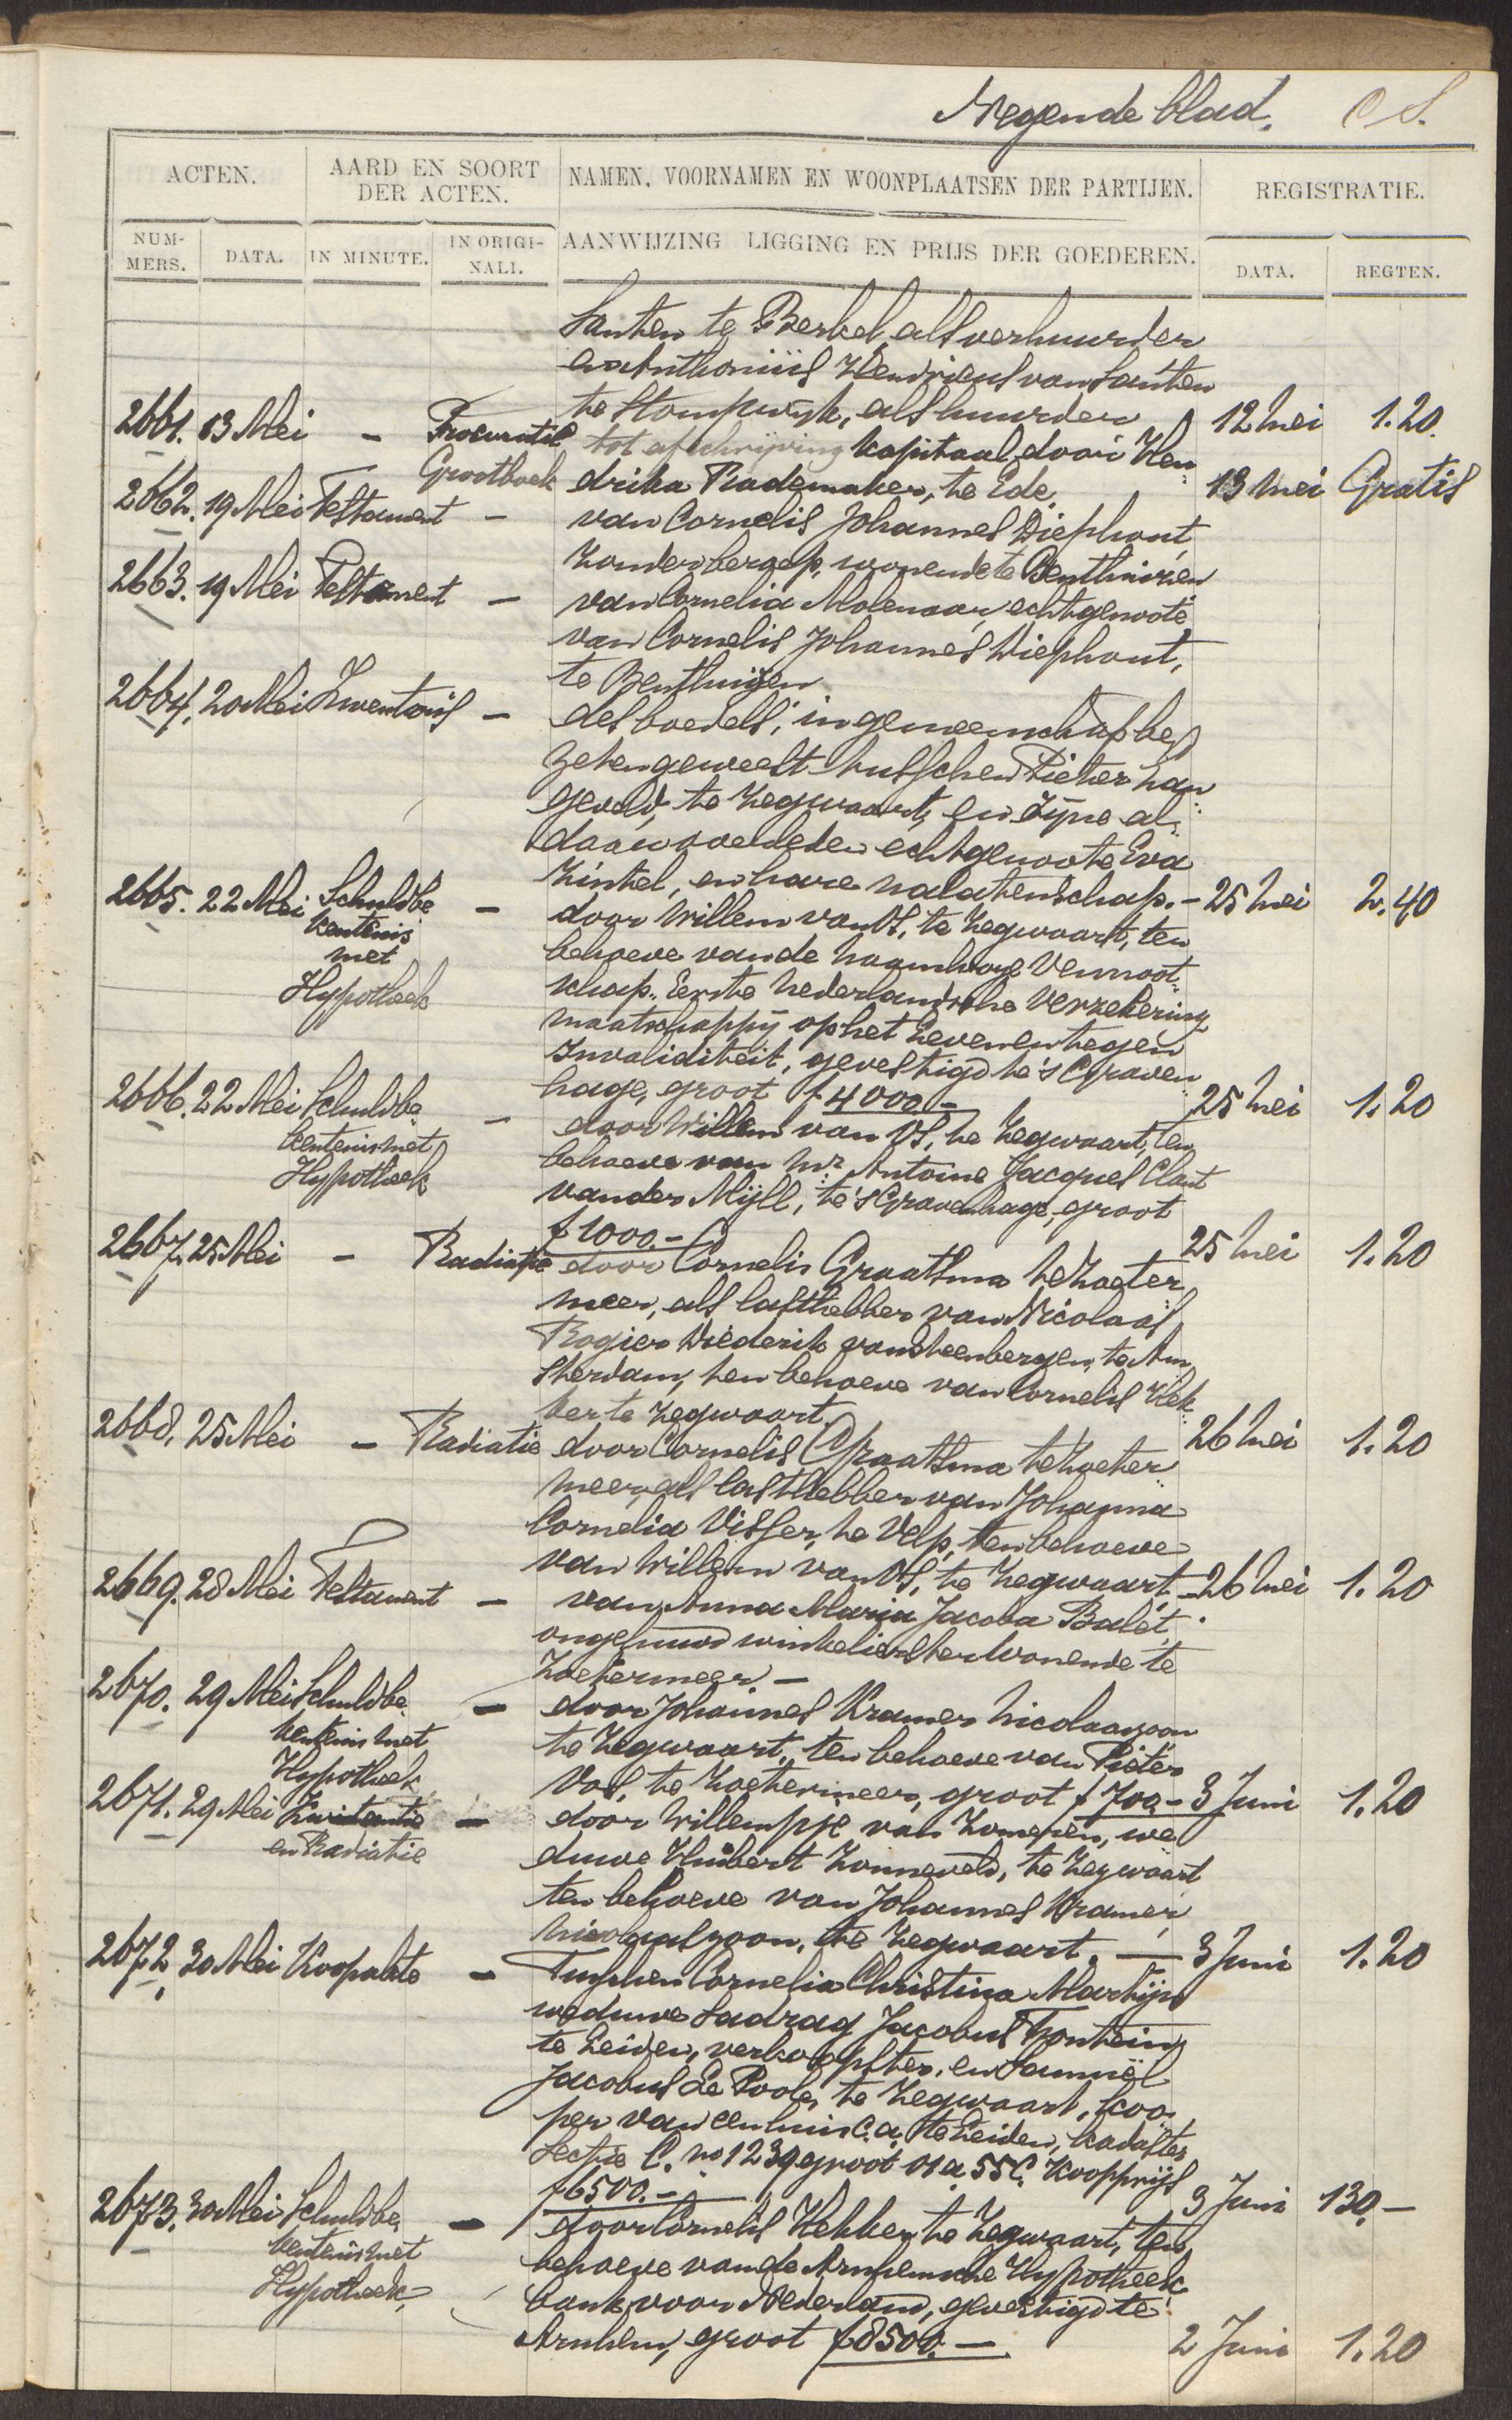 Negende blad. C S.
ACTEN. AARD EN SOORT DER ACTEN. NAMEN, VOORNAMEN EN WOONPLAATSEN DER PARTIJEN. REGISTRATIE.
NUM-MERS. DATA. IN MINUTE. IN ORIGI-NALI. AANWIJZING LIGGING EN PRIJS DER GOEDEREN. DATA. REGTEN.
Santen te Berkel, als verhuurder
en Anthoniüs Hendricus van Santen
te Stompwijk, als huurder 12 Mei 1.20.
2661. 13 Mei - Procuratie tot afschrijving kapitaal, door Hen
Grootboek drika Rademaker, te Ede. 13 Mei Gratis
2662. 19 Mei Testament - van Cornelis Johannes Diephout,
zonder beroep, wonende te Benthuizen
2663. 19 Mei Testament - van Cornelia Molenaar, echtgenoote
van Cornelis Johannes Diephout,
te Benthuizen
2664. 20 Mei Inventaris - des boedels, in gemeenschap be
zeten geweest tusschen Pieter Lan
geveld, te Zegwaart, en zijne al
daar overleden echtgenoote Eva
Kinkel, en hare nalatenschap. - 25 Mei 2.40
2665. 22 Mei Schuldbe - door Willem van Os, te Zegwaart, ten
kentenis behoeve van de Naamlooze Vennoot
met schap. Eerste Nederlandsche Verzekering
Hypotheek maatschappij op het Leven en tegen
Invaliditeit, gevestigd te 's Graven
hage, groot f 4000.- 25 Mei 1.20
2666. 22 Mei Schuldbe - door Willem van Os, te Zegwaart, ten
kentenis met behoeve van Mr. Antoine Jacques Clant
Hypotheek van der Mijll, te 's Gravenhage, groot
f 1000.- 25 Mei 1.20
2667. 25 Mei - Radiatie door Cornelis Graatsma te Zoeter
meer, als lasthebber van Nicolaas
Rogier Diederik van Steenbergen, te Am
sterdam, ten behoeve van Cornelis Hek
ker te Zegwaart. 26 Mei 1.20
2668. 25 Mei - Radiatie door Cornelis Graatsma te Zoeter
meer, als lasthebber van Johanna
Cornelia Visser, te Velp, ten behoeve
van Willem van Os, te Zegwaart - 26 Mei 1.20
2669. 28 Mei Testament - van Anna Maria Jacoba Balet,
ongehuwd winkelierster wonende te
Zoetermeer -
2670. 29 Mei Schuldbe - door Johannes Kramer Nicolaaszoon
kentenis met te Zegwaart, ten behoeve van Pieter
Hypotheek Vos, te Zoetermeer, groot f 700.- 3 Juni 1.20
2671. 29 Mei Kwitantie - door Willempje van Zomeren, we
en Radiatie duwe Huibert Zonneveld, te Zegwaart
ten behoeve van Johannes Kramer
Nicolaaszoon, te Zegwaart. - 3 Juni 1.20
2672. 30 Mei Koopakte - Tusschen Cornelia Christina Martijn
weduwe Sadrag Jacobus Fontein
te Leiden, verkoopster, en Samuël
Jacobus Le Poole, te Zegwaart, koo
per van een huis c.a. te Leiden, kadaster
Sectie C. no 1239 groot 01 a 55 c. Koopprijs
f 6500.- 3 Juni 130.-
2673. 30 Mei Schuldbe - door Cornelis Hekker te Zegwaart, ten
kentenis met behoeve van de Arnhemsche Hypotheek
Hypotheek bank voor Nederland, gevestigd te
Arnhem, groot f 8500.- 2 Juni 1.20